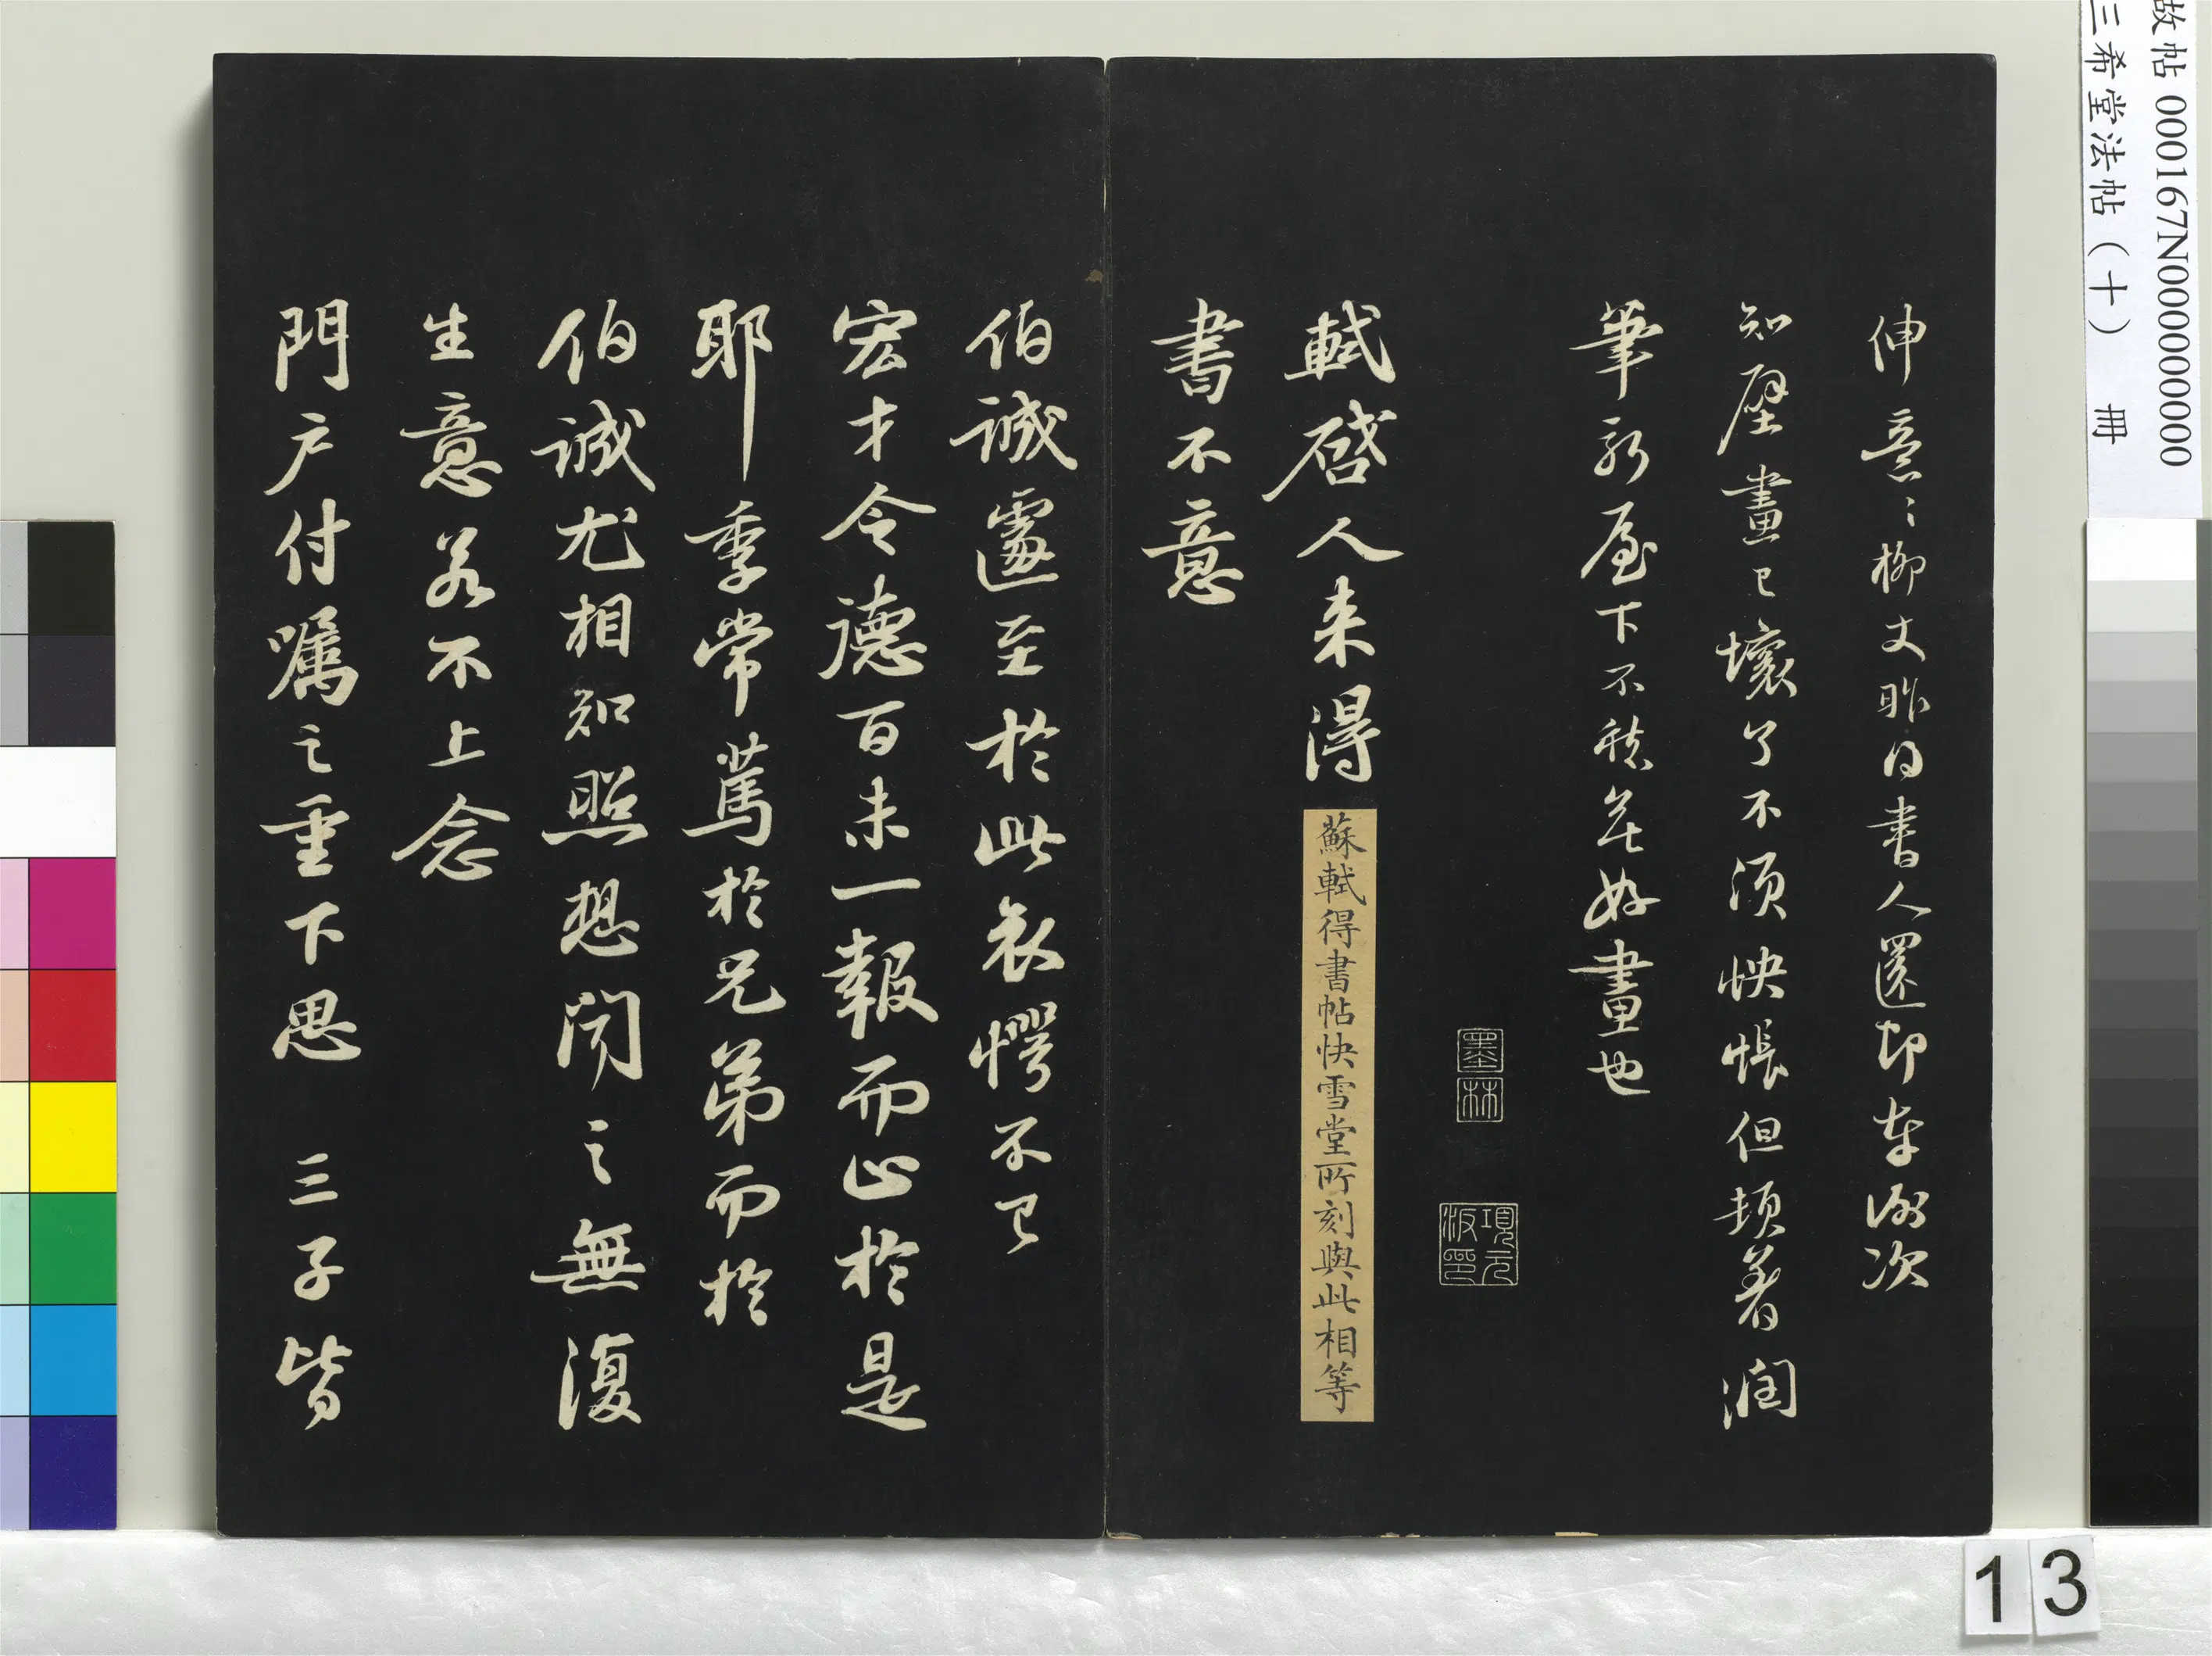 故帖 000167N000000000
三希堂法帖（十） 冊
伸意〻柳丈昨得書人還即奉謝次
知壁畫已壞了不須怏悵但頓着潤
筆新屋下不愁無好畫也
墨林
項元汴印
軾啓人來得
蘇軾得書帖快雪堂所刻與此相等
書不意
伯誠遽至於此哀愕不已
宏才令德百未一報而止於是
耶季常篤於兄弟而於
伯誠尤相知照想聞之無復
生意若不上念
門戶付囑之重下思 三子皆
13